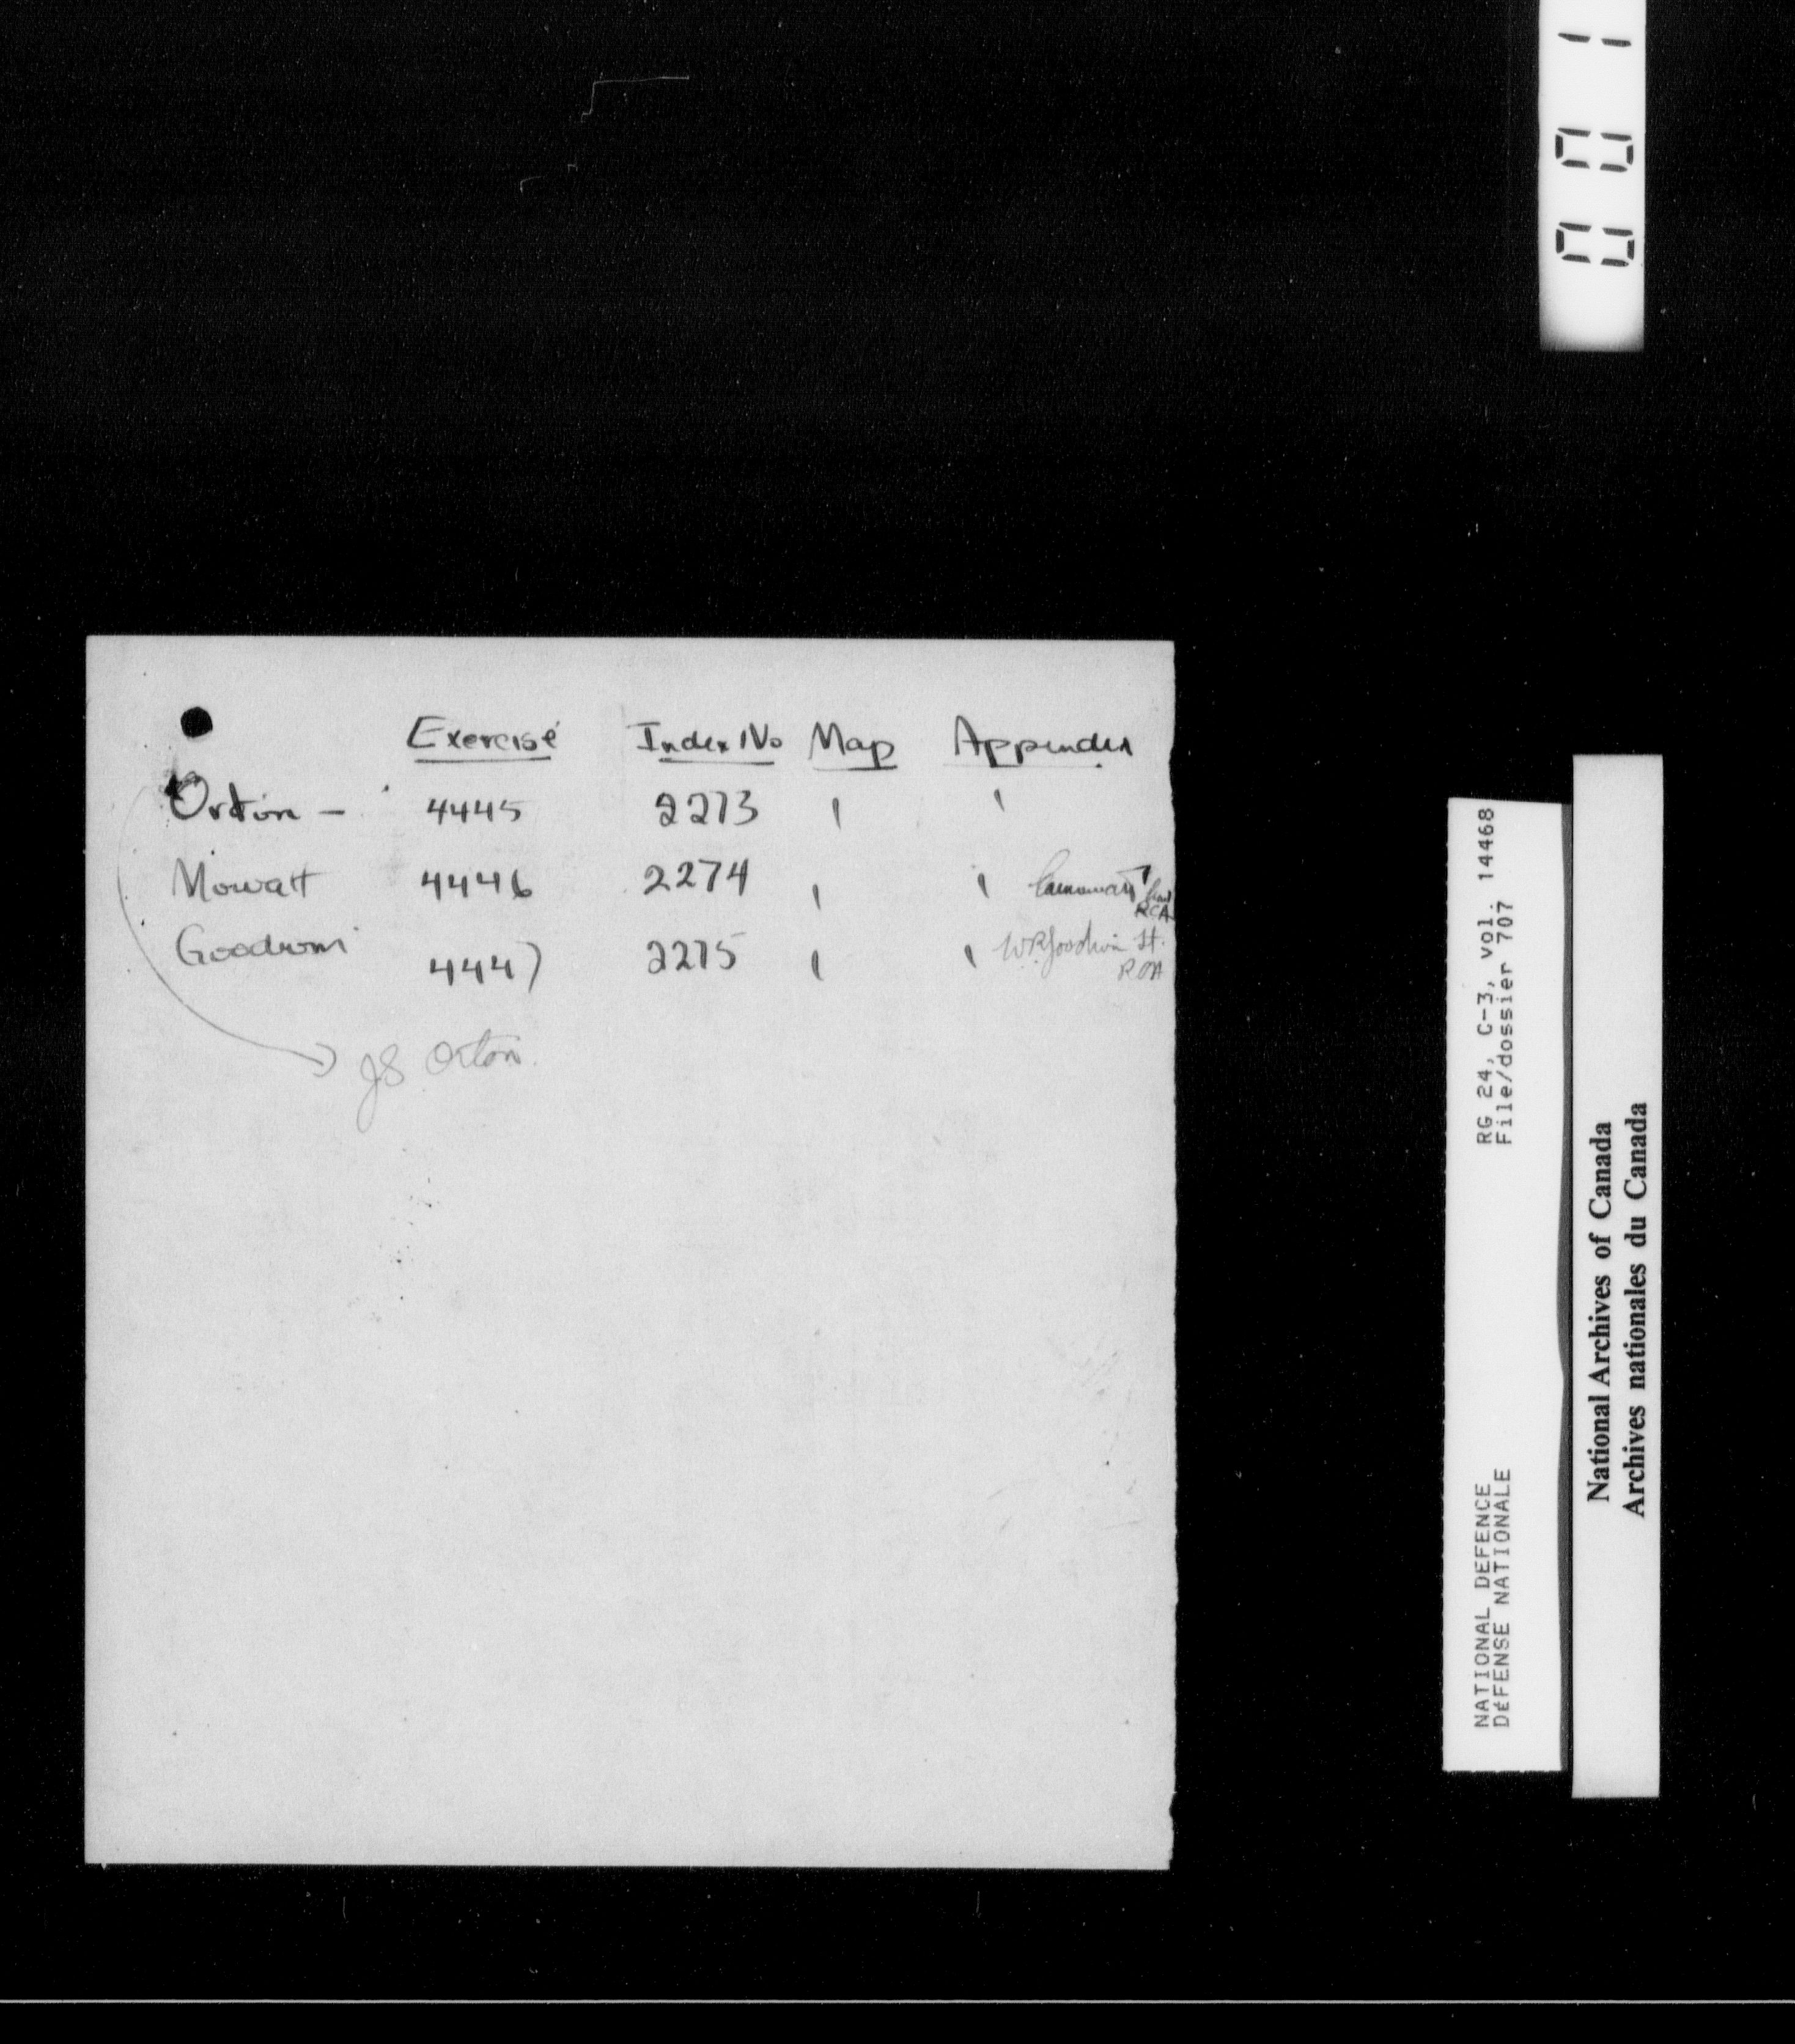 001
Exercise Index No Map Appendix
Orton - 4445 2273 1 1
Mowatt 4446 2274 1 1
RCA
Goodwin 4447 2275 1 1 WR Goodwin Lt.
RCA
JS Orton
RG 24, C-3, vol. 14468
File/dossier 707
NATIONAL DEFENCE
DéFENSE NATIONALE
National Archives of Canada
Archives nationales du Canada